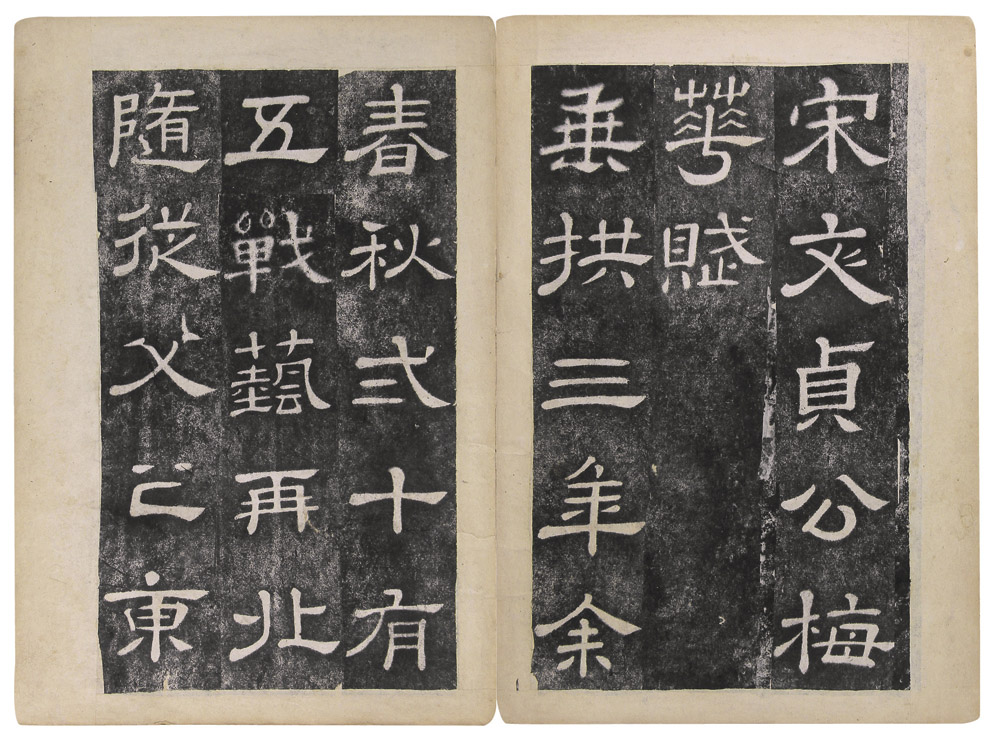 宋文貞公梅
華賦
垂拱三年余
春秋弍十有
五戰藝再北
隨從父之東